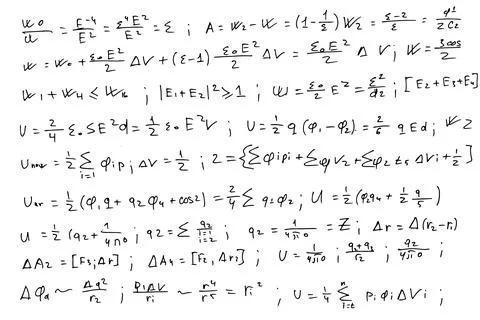 W0/U = E^-4/E^2 = ε^4E^2/E^2 = ε ; A = W2 - W = (1 - 1/ε) W2 = ε-2/ε = q^2/2C2
W = W0 + ε0E^2/2 ΔV + (ε-1) ε0E^2/2 ΔV = ε0E^2/2 ΔV ; W =
W1 + W4 ≤ W16 ; |E1 + E2|^2 ≥ 1 ; W = ε0/2 E^2 = ; [E2 + E3 + E4]
U = 2/4 ε0SE^2d = 1/2 ε0E^2V ; U = 1/2 q (φ1 - φ2) = 2/6 qEd ; W2
= 1/2 Σ i=1 φip ; ΔV = 1/2 ; 2 = {Σφipi + + Σφ2 ΔVi + 1/2]
= 1/2 (φ1q + q2φ4 + cos2) = 2/4 Σq2φ2 ; U = 1/2 (φ2q4 + 1/2 q/5)
U = 1/2 (q2 + 1/4π0 ; q2 = Σ q2 i=1 i=2 ; q2 = 1/4πi0 = Z ; Δr = Δ(r2 - ri)
ΔA2 = [F3; Δr] ; ΔA4 = [F2, Δri] ; U = 1/4πi0 ; q3+q3/r2 ; q2/4πi0 ;
Δφa ~ Δq^2/r2 ; piΔV/ri ~ r^4/r^5 = ri^2 ; U = 1/4 Σ n i=t piφiΔVi ;